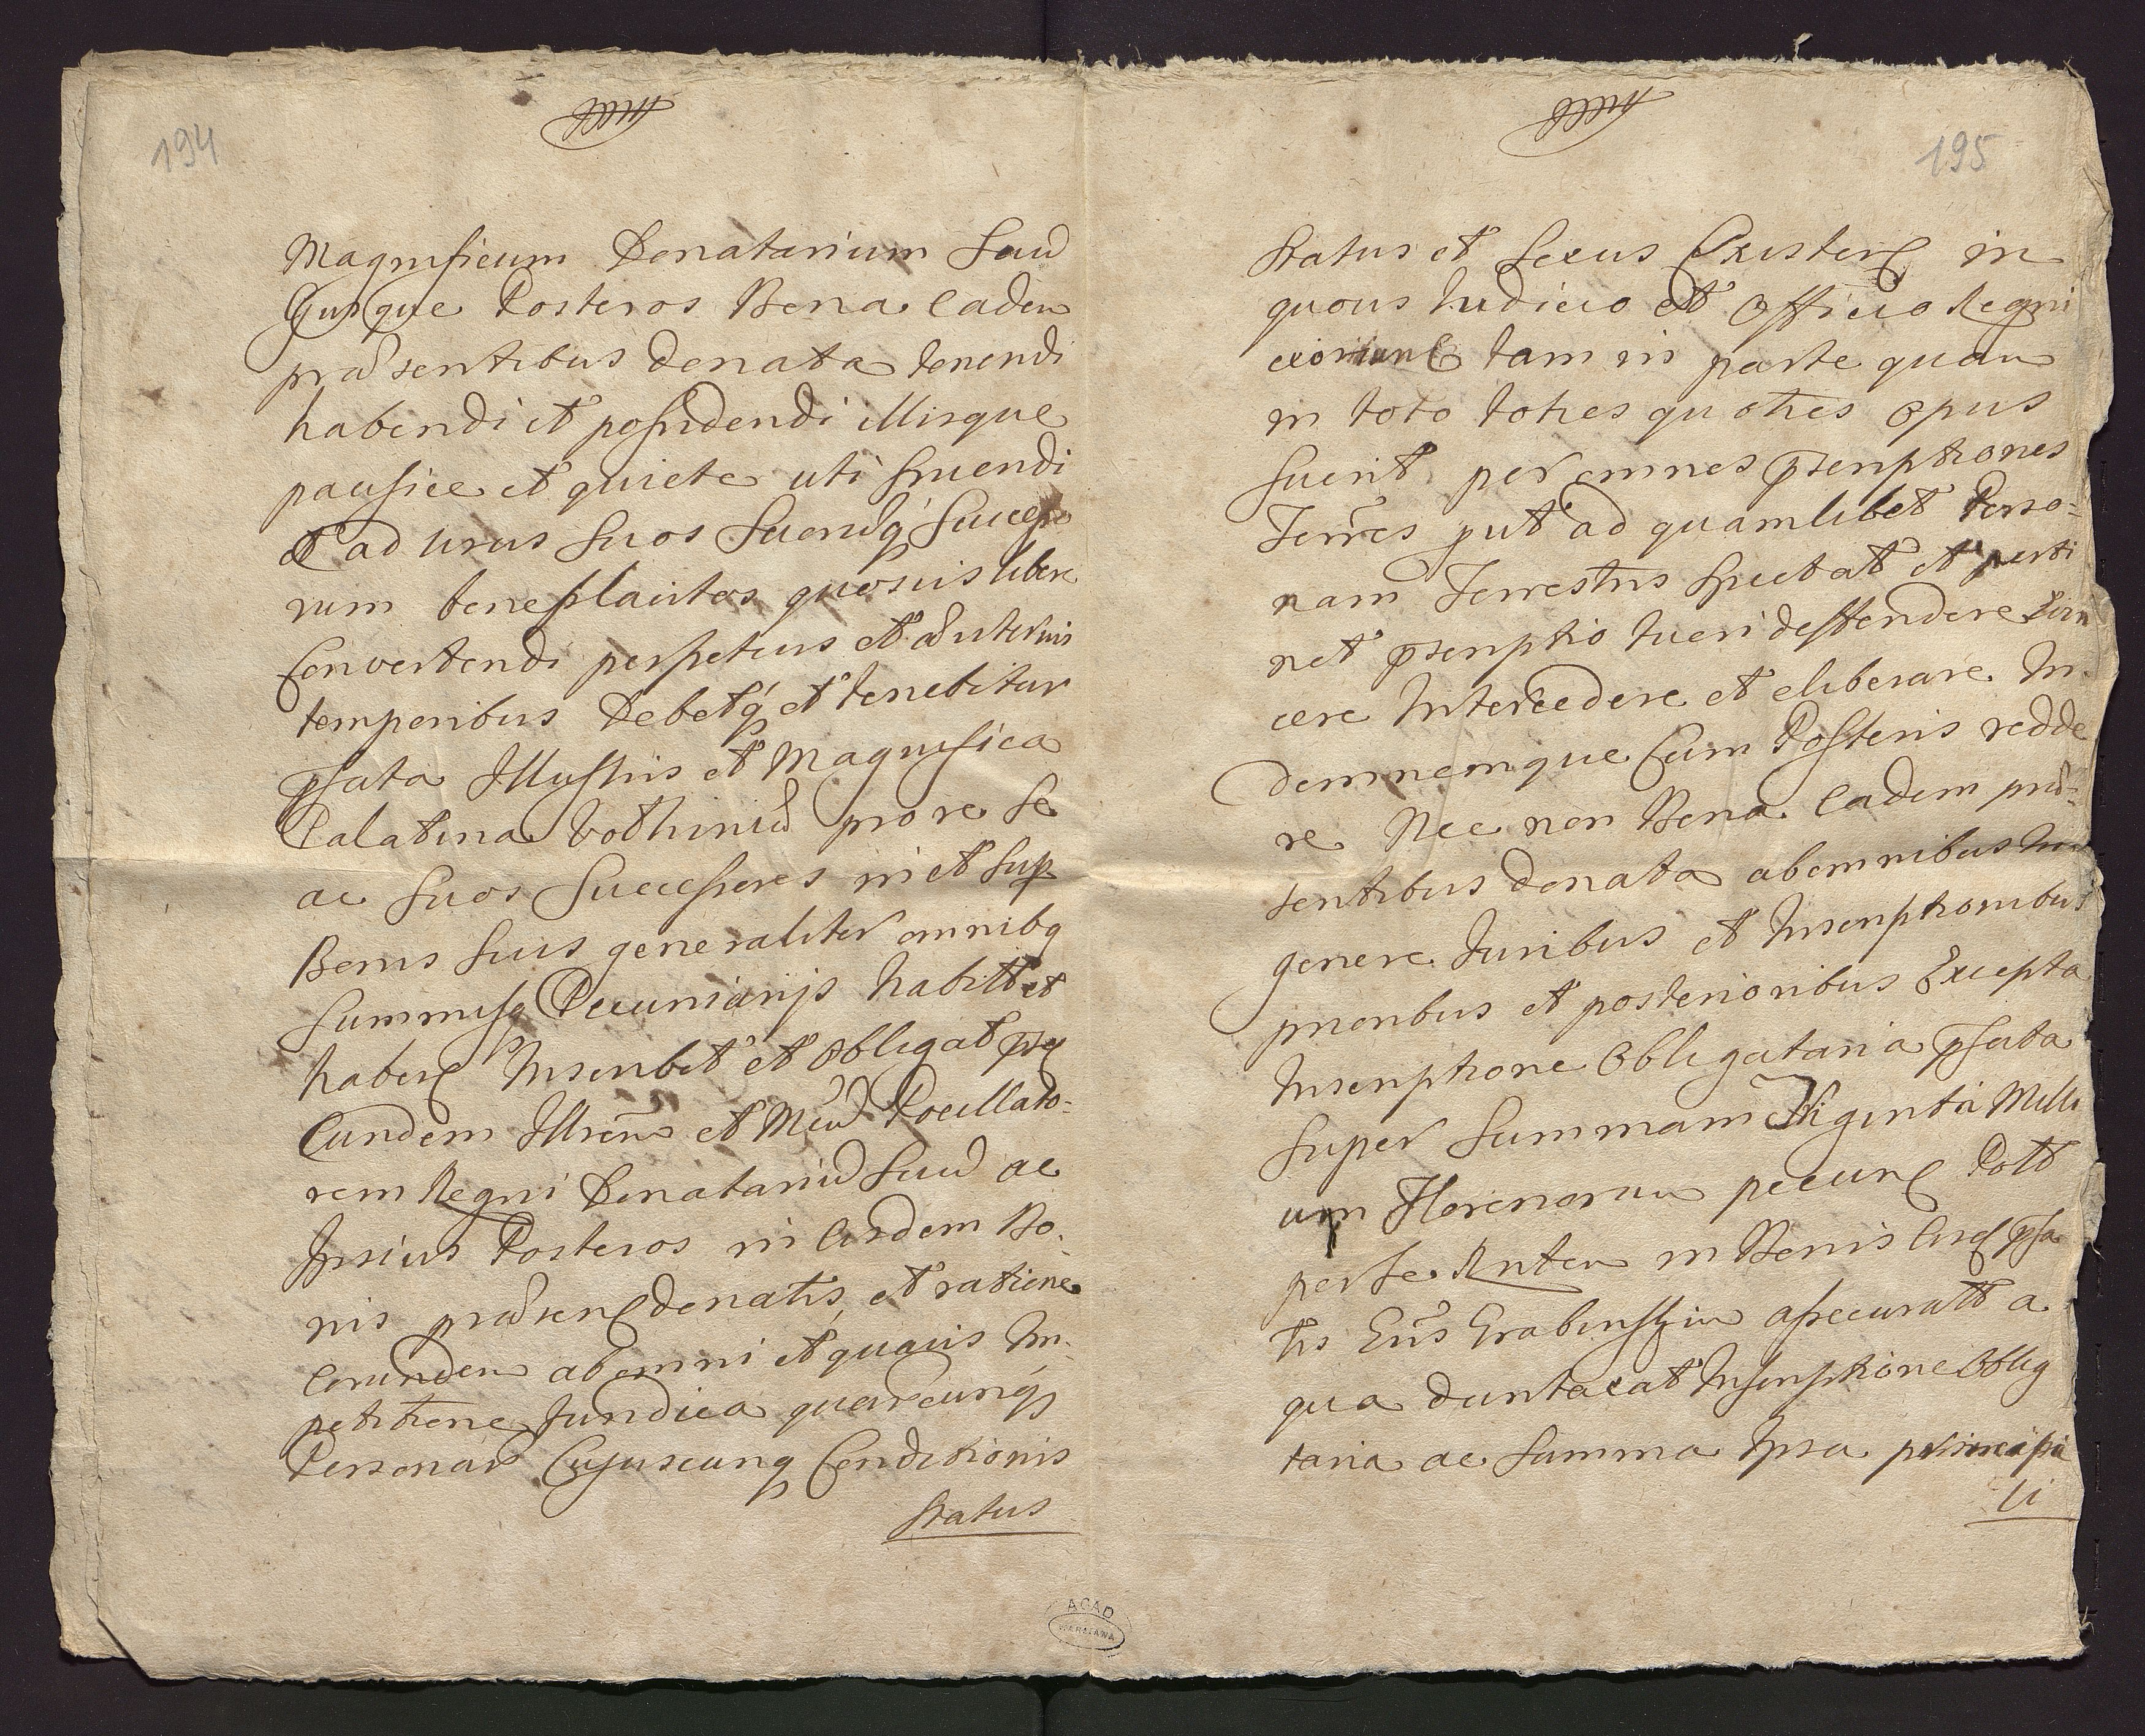 194
Magnificum Donatarium Suũ
Ejusque Posteros Bona Eadem
præsentibus donata tenendi
habendi et possidendi illisque
pacifice et quiete uti fruendi
et ad usus suos suorũq́ Successo
rum beneplacitos quosvis libere
Convertendi perpetuis et æviternis
temporibus Debetq́ et tenebitur
pfata Illustris et Magnifica
Palatina Volhiniæ pro re se
ac suos Successores in et sup
Bonis suis generaliter omnibq
Summisq Pecuniarijs habitt et
haben Inscribit et obligat
Eundem Illrem et Mcũ Pocillato-
rem Regni Donatariũ Suũ ac
Ipsius Posteros in Eisdem Bo-
nis præsen donatis, et ratione
Eorundem ab omni et quavis Im-
petitione Juridica quarcunq
Personar Cujuscunq Conditionis
Status
195
Status et Sexus Existen in
quovis Judicio et Officio Regni
exorien tam in parte quam
in toto toties quoties opus
fuerit per omnes pscriptiones
Terres put ad quamlibet Perso-
nam Terrestris spectat et perti
net pscriptio tueri deffendere Evin
cere Intercedere et eliberare In-
demnemque Cum Posteris redde
re Nec non Bona Eadem præ-
sentibus donata ab omnibus In
genere Juribus et Inscriptionibus
prioribus et posterioribus Excepta
Inscriptione Obligatoria pfata
super Summam Triginta Milli
um Florenorum pecun Poll
per se Antea in Bonis Eisq pfa
tis Erabinszkim assecuratt a
qua duntaxat Inscriptione Oblig
toria ac Summa Ipsa principa
li
ACAD
WARSZAWA